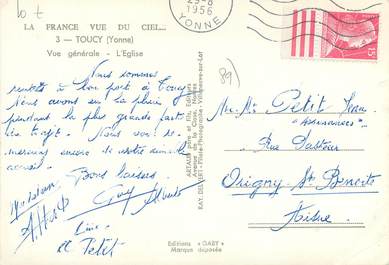 10 F
LA FRANCE VUE DU CIEL...
3 — TOUCY (Yonne)
Vue générale - L'Eglise
1956
YONNE
15
(89)
Nous sommes
rentrés à bon port à Toucy
Nous avons eu la pluie
pendant la plus grande partie
du trajet. Nous vous re-
mercions encore de votre
accueil.
Bons baisers
Guy
Line
et Petit
ARTAUD père et fils, Editeurs
RAY. DELVERT - Pilote-Photographe - Villeneuve-sur-Lot
M. Mme Petit Jean
"Assurances"
Rue Pasteur
Origny Ste Benoite
Aisne
Editions "GABY"
Marque déposée